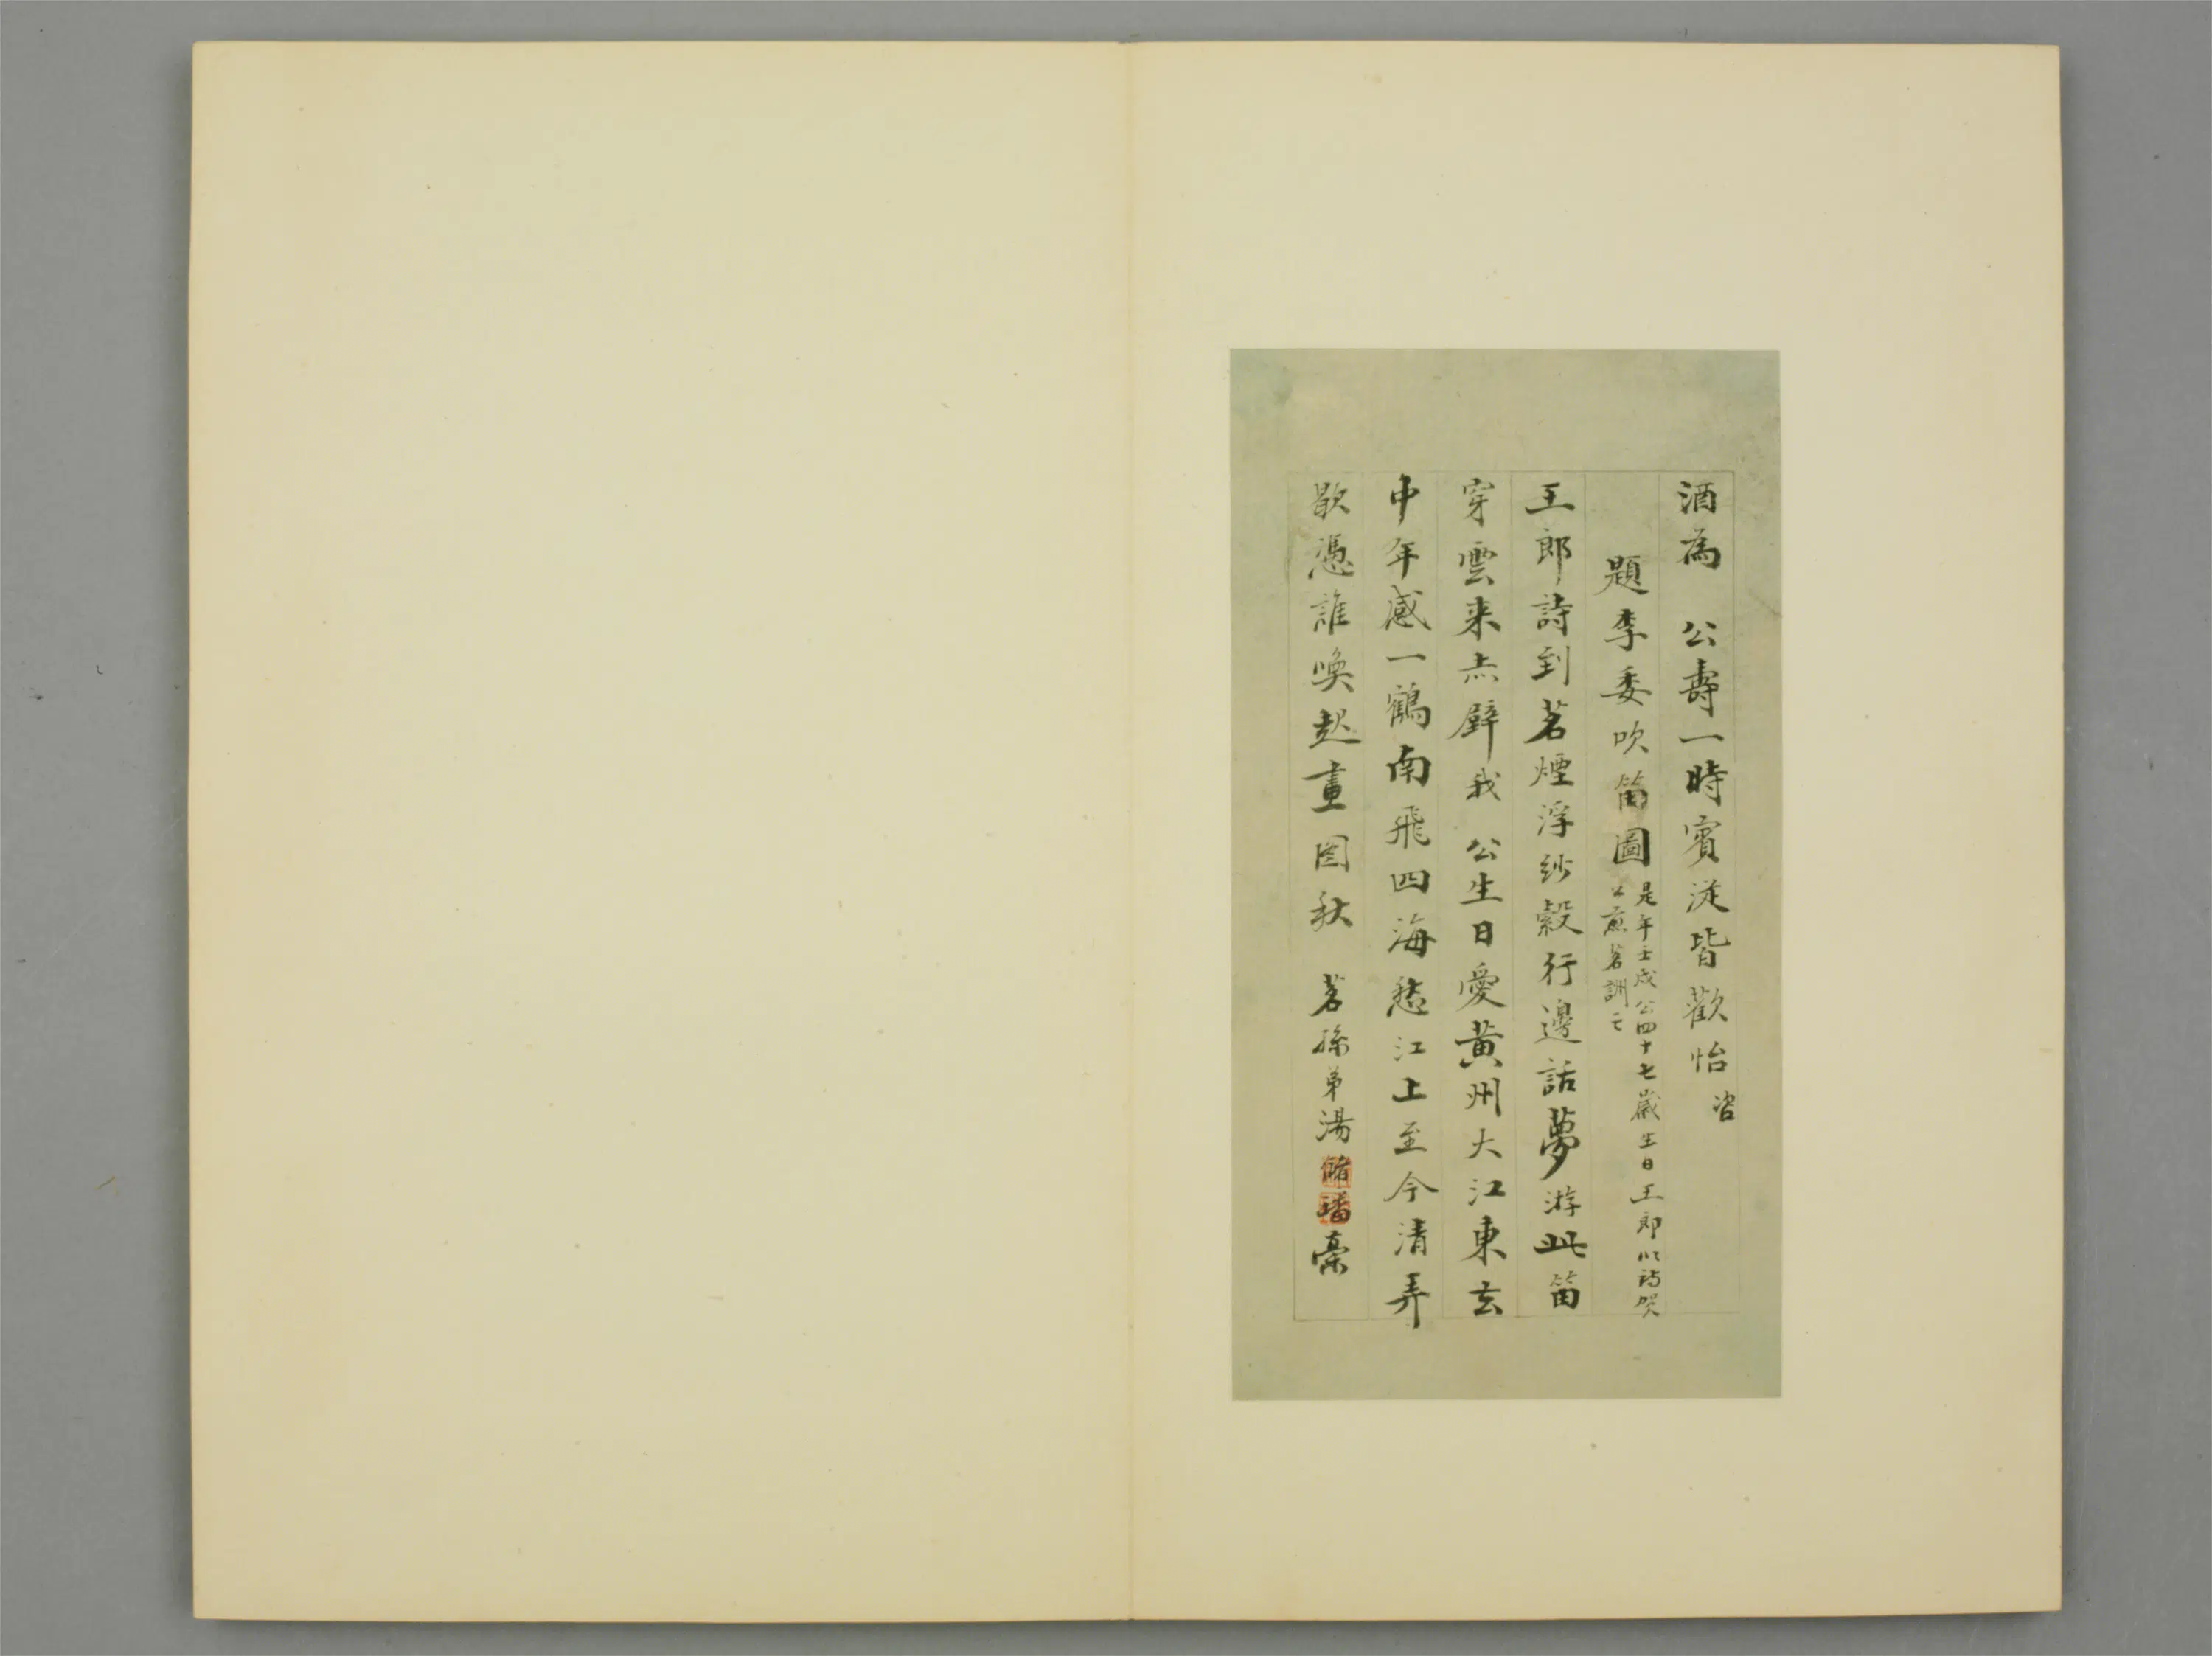 酒為 公壽一時賓從皆歡怡
題李委吹笛圖 是年壬戌公四十七歲生日王郎以詩賀
公煎茗詶之
王郎詩到茗煙浮紗縠行邊話夢游此笛
穿雲来赤壁我 公生日愛黃州大江東去
中年感一鶴南飛四海愁江上至今清弄
歇憑誰喚起畫圖秋 茗孫弟湯儲璠稾